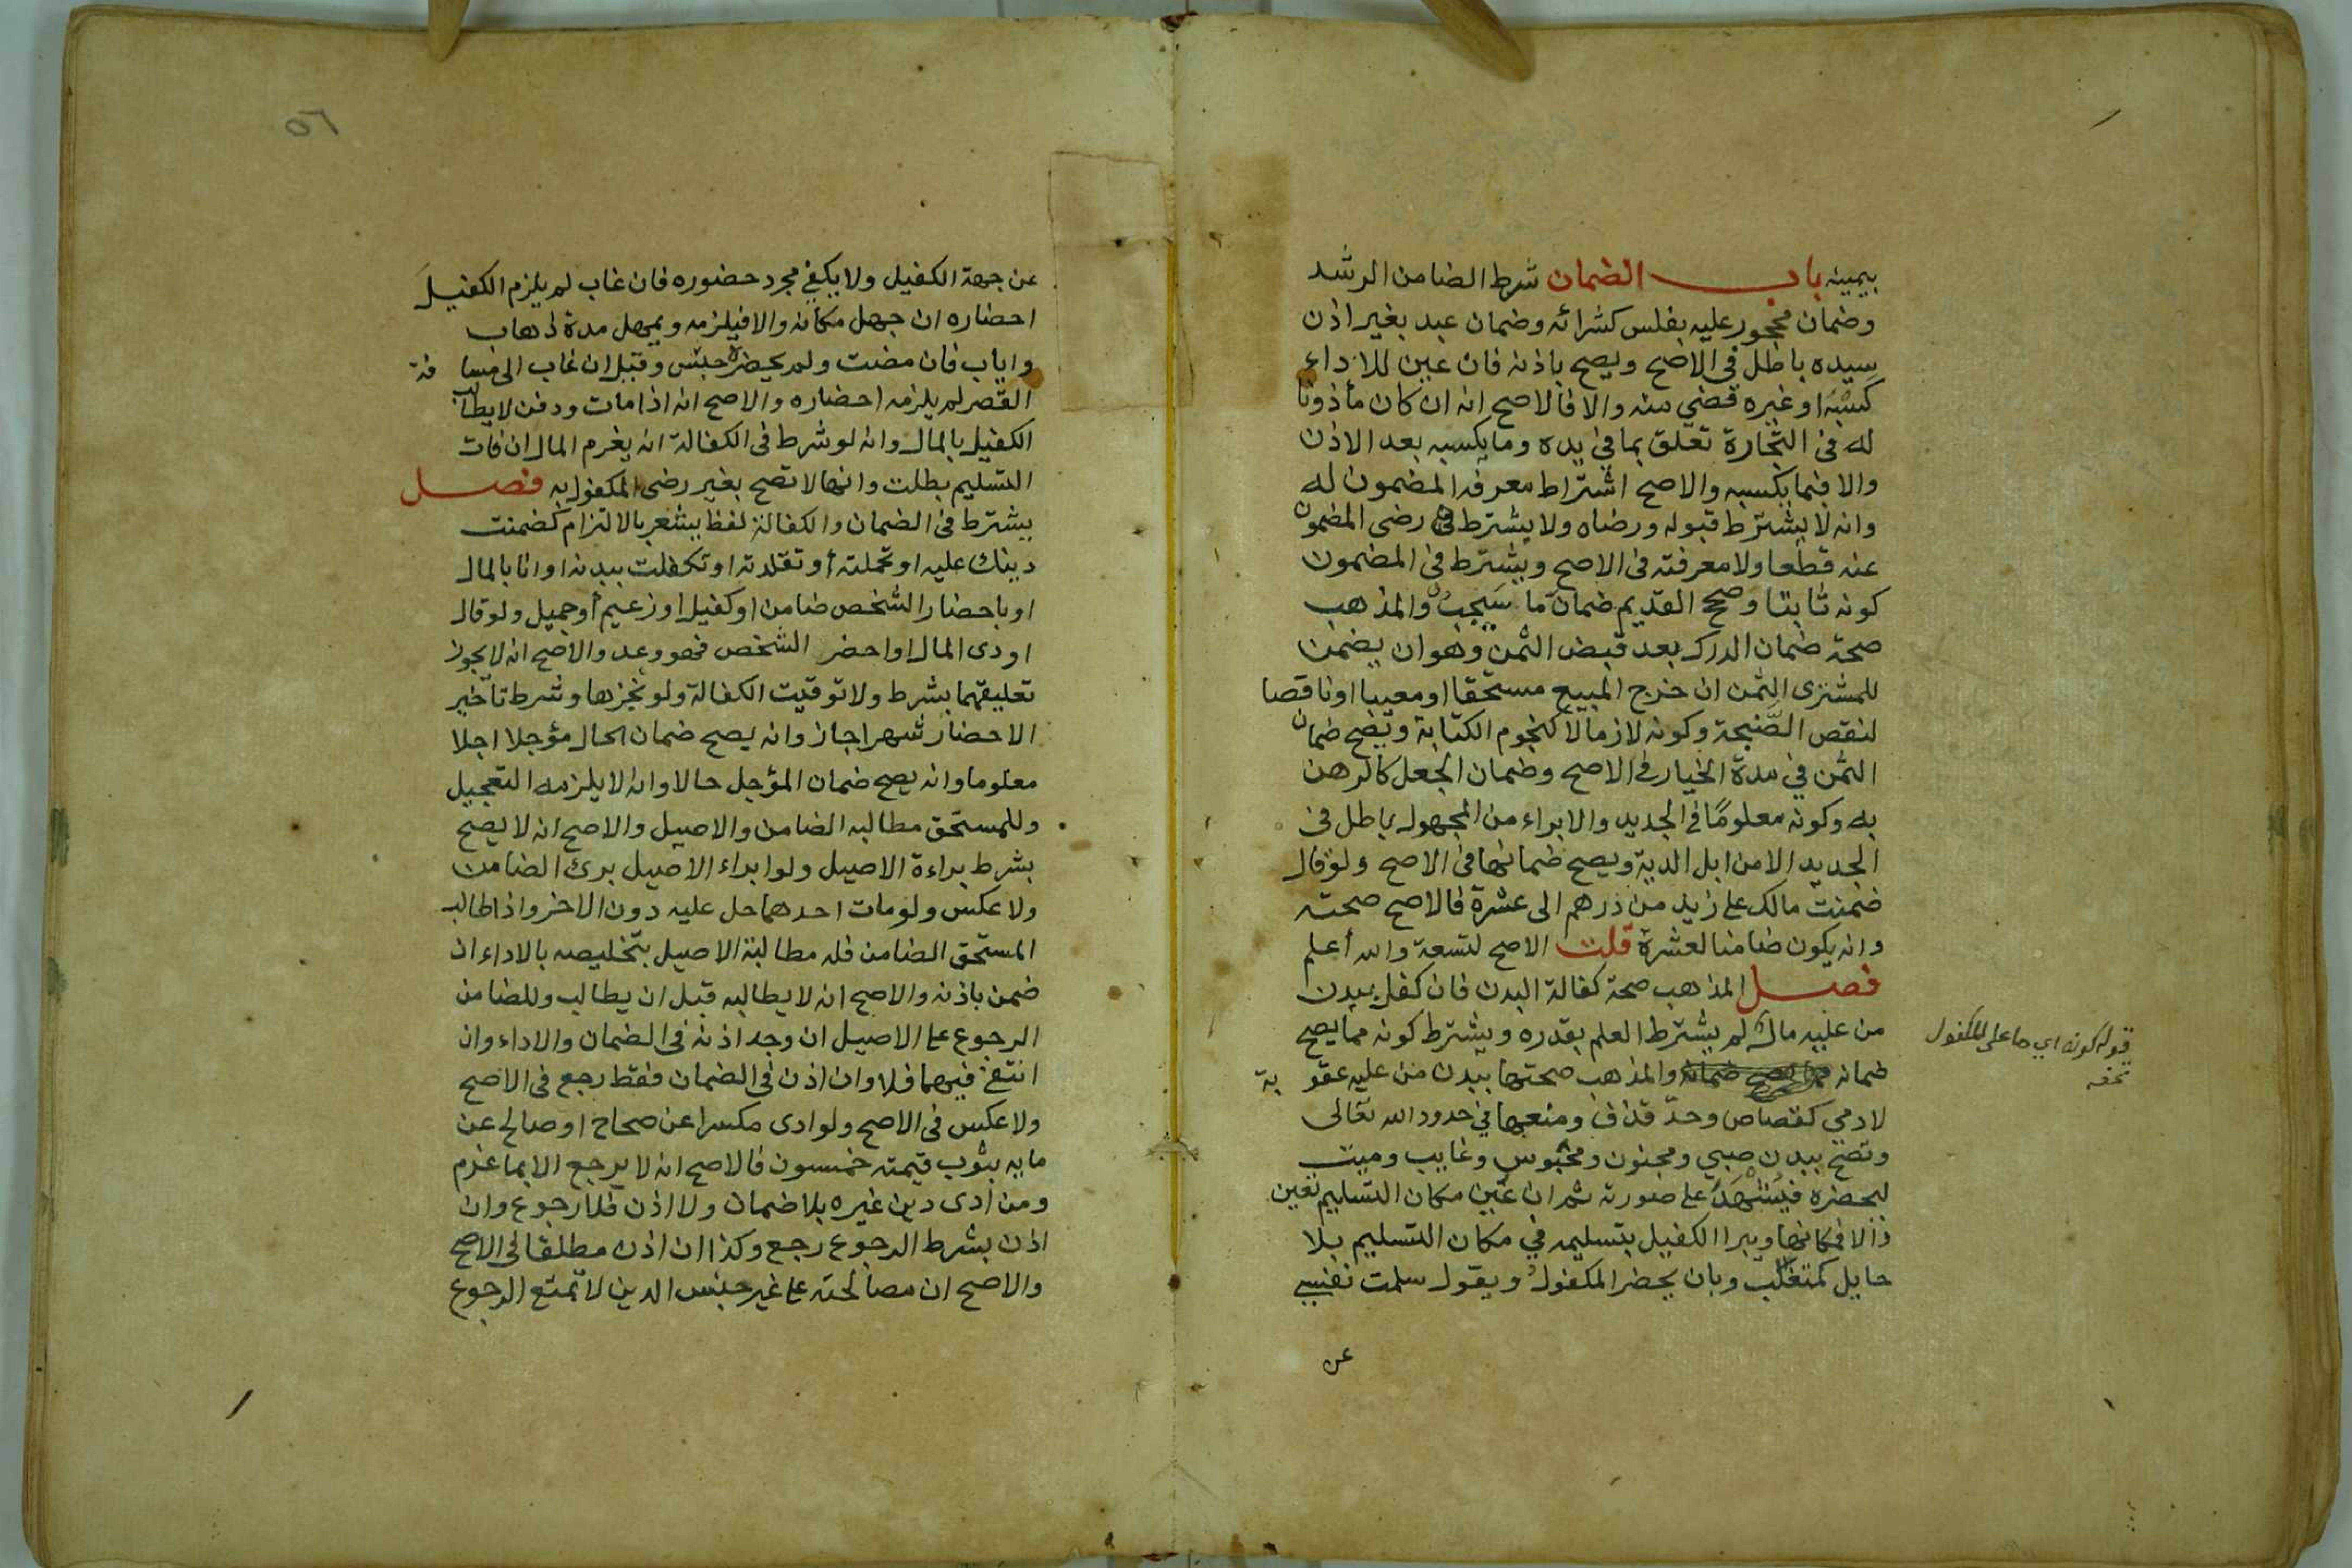 بيمينه باب الضمان شرط الضامن الرشد
وضمان محجور عليه بفلس كشرائه وضمان عبد بغير اذن
سيده باطل فى الاصح ويصح باذنه فان عين للاداء
كسبه او غيره قضى منه والا فالاصح انه ان كان مأذونا
له فى التجارة تعلق بما فى يده وما يكسبه بعد الاذن
والا فبما يكسبه والاصح اشتراط معرفة المضمون له
وانه لا يشترط قبوله ورضاه ولا يشترط رضى المضمون
عنه قطعا ولا معرفته فى الاصح ويشترط فى المضمون
كونه ثابتا وصحح القديم ضمان ما سيجب والمذهب
صحة ضمان الدرك بعد قبض الثمن وهو ان يضمن
للمشترى الثمن ان خرج المبيع مستحقا او معيبا او ناقصا
لنقص الصنجة وكونه لازما لا كنجوم الكتابة ويصح ضمان
الثمن في مدة الخيار فى الاصح وضمان الجعل كالرهن
به وكونه معلومًا فى الجديد والابراء من المجهول باطل فى
الجديد الا من ابل الدية ويصح ضمانها فى الاصح ولو قال
ضمنت مالك على زيد من درهم الى عشرة فالاصح صحته
وانه يكون ضامنا لعشرة قلت الاصح لتسعة والله أعلم
فصل المذهب صحة كفالة البدن فان كفل ببدن
من عليه مال لم يشترط العلم بقدره ويشترط كونه مما يصح
ضمانه والمذهب صحتها ببدن من عليه عقوبة
لادمي كقصاص وحدّ قذف ومنعها في حدود الله تعالى
وتصح ببدن صبي ومجنون ومحبوس وغايب وميت
ليحضره فيُشهَد على صورته ثم ان عين مكان التسليم تعين
والا فمكانها ويبرا الكفيل بتسليمه في مكان التسليم بلا
حايل كمتغلب وبان يحضر المكفول ويقول سلمت نفسي
عن
قوله كونه اي ما على المكفول
تحفه
٥٦
عن جهة الكفيل ولا يكفي مجرد حضوره فان غاب لم يلزم الكفيلَ
احضاره ان جهل مكانه والا فيلزمه ويمهل مدة ذهاب
واياب فان مضت ولم يحضره حبس وقيل ان غاب الى مسافة
القصر لم يلزمه احضاره والاصح انه اذا مات ودفن لا يطالب
الكفيل بالمال وانه لو شرط فى الكفالة انه يغرم المال ان فات
التسليم بطلت وانها لا تصح بغير رضى المكفول به فصل
يشترط فى الضمان والكفالة لفظ يشعر بالالتزام كضمنت
دينك عليه او تحملته أو تقلدته او تكفلت ببدنه او انا بالمال
او باحضار الشخص ضامن او كفيل او زعيم أو حميل ولو قال
اودى المال او احضر الشخص فهو وعد والاصح انه لا يجوز
تعليقهما بشرط ولا توقيت الكفالة ولو نجزها وشرط تأخير
الاحضار شهرا جاز وانه يصح ضمان الحال مؤجلا اجلا
معلوما وانه يصح ضمان المؤجل حالا وانه لا يلزمه التعجيل
وللمستحق مطالبه الضامن والاصيل والاصح انه لا يصح
بشرط براءة الاصيل ولو ابراء الاصيل برئ الضامن
ولا عكس ولو مات احدهما حل عليه دون الاخر واذا طالب
المستحق الضامن فله مطالبة الاصيل بتخليصه بالاداء ان
ضمن باذنه والاصح انه لا يطالبه قبل ان يطالب وللضامن
الرجوع على الاصيل ان وجد اذنه فى الضمان والاداء وان
انتفى فيهما فلا وان اذن فى الضمان فقط رجع فى الاصح
ولا عكس فى الاصح ولو ادى مكسرا عن صحاح او صالح عن
مايه بثوب قيمته خمسون فالاصح انه لا يرجع الا بما غرم
ومن أدى دين غيره بلا ضمان ولا اذن فلا رجوع وان
اذن بشرط الرجوع رجع وكذا ان اذن مطلقا فى الاصح
والاصح ان مصالحته على غير جنس الدين لا تمنع الرجوع